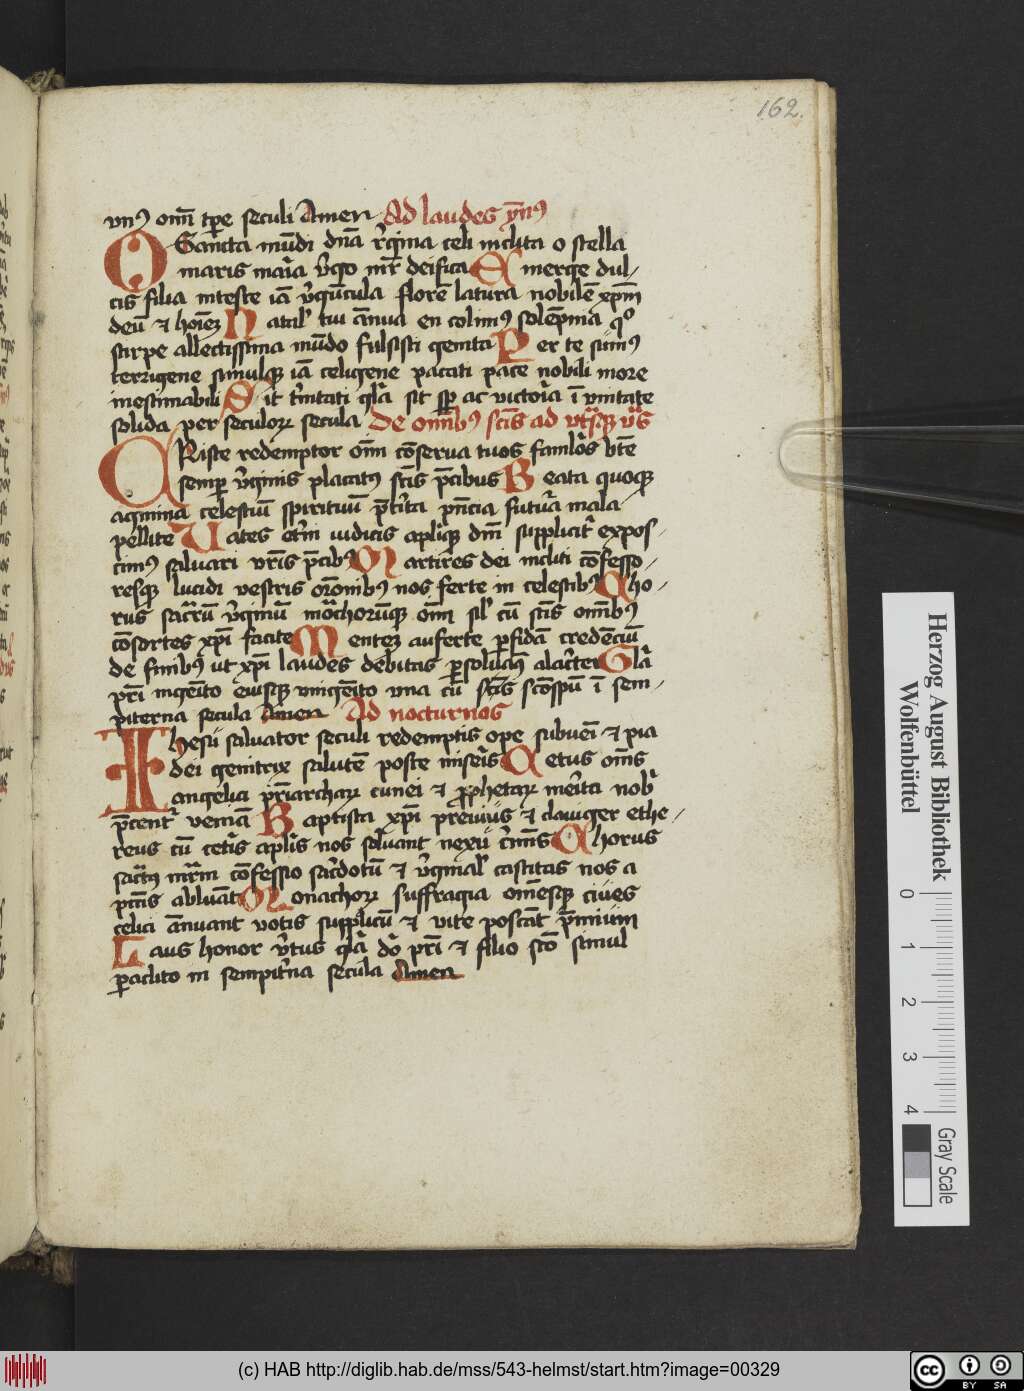 162.
vnꝰ om̄ tꝑe seculi Amen Ad laudes ẏnꝰ
O Sancta mūdi dnā r̄gina celi inclita o stella
maris mar̄ia v̄go mr̄ deifica E merge dul-
cis filia inteste iā v̄gūcula florē latura nobilē xp̄m
deū ⁊ hoīeꝫ N atal' tui ānua en colimꝰ solēpnia qͦ
stirpe allectissima mūdo fulsisti genita P er te sumꝰ
terrigene simulqꝫ iā celigene pacati pace nobili more
inestimabili S it t̄nitati gl̄a sit sꝑ ac victor̄ia ī vnitate
solida per seculoꝝ secula De om̄ibꝰ sc̄is ad vtsqꝫ vs̄
C Riste redemptor om̄ cōserua tuos famlōs bt̄e
semꝑ v̄ginis placatꝰ sc̄is p̄cibus B eata quoqꝫ
agmina celestiū spirituū p̄t̄ita pn̄cia futur̄a mala
pellite U ates et̄ni iudicis apliqꝫ dn̄i supplicit̄ expos-
cimꝰ saluari vr̄is p̄cibꝰ M artires dei incliti cōfesso-
resqꝫ lucidi vestris or̄onibꝰ nos ferte in celestibꝰ C ho-
rus sacr̄ū v̄ginū mōchorūqꝫ om̄ sil' cū sc̄is om̄ibꝰ
cōsortes xp̄i facite M enteꝫ auferte ꝑfidā credēciū
de finibꝰ ut xp̄i laudes debitas ꝑsoluam̄ alacr̄ter G lā
pr̄i ingēito eiusqꝫ vnigēito vna cū sc̄is scōsp̄u ī sem-
piterna secula Amen Ad nocturnos
I hesu saluator seculi redemptis ope subuēi ⁊ pia
dei genitrix salutē posce miser̄is C etus om̄s
angelici pr̄iarchaꝝ cunei ⁊ ꝓphetaꝝ mer̄ita nob̄
p̄cent̄ veniā B aptista xp̄i preuius ⁊ clauiger ethe-
reus cū cetr̄is apl̄is nos soluant nexu c̄mīs C horus
sacꝰ mr̄m cōfessio sac̄dotū ⁊ v̄ginal' castitas nos a
pcc̄is abluāt M onachoꝝ suffragia om̄esqꝫ ciues
celici ānuant votis supplicū ⁊ vite poscāt p̄mium
L aus honor v̄tus gl̄a dō pr̄i ⁊ filio scō simul
ꝑaclito in sempit̄na secula Amen
Herzog August Bibliothek
Wolfenbüttel
0 1 2 3 4
Gray Scale
(c) HAB http://diglib.hab.de/mss/543-helmst/start.htm?image=00329
cc BY SA